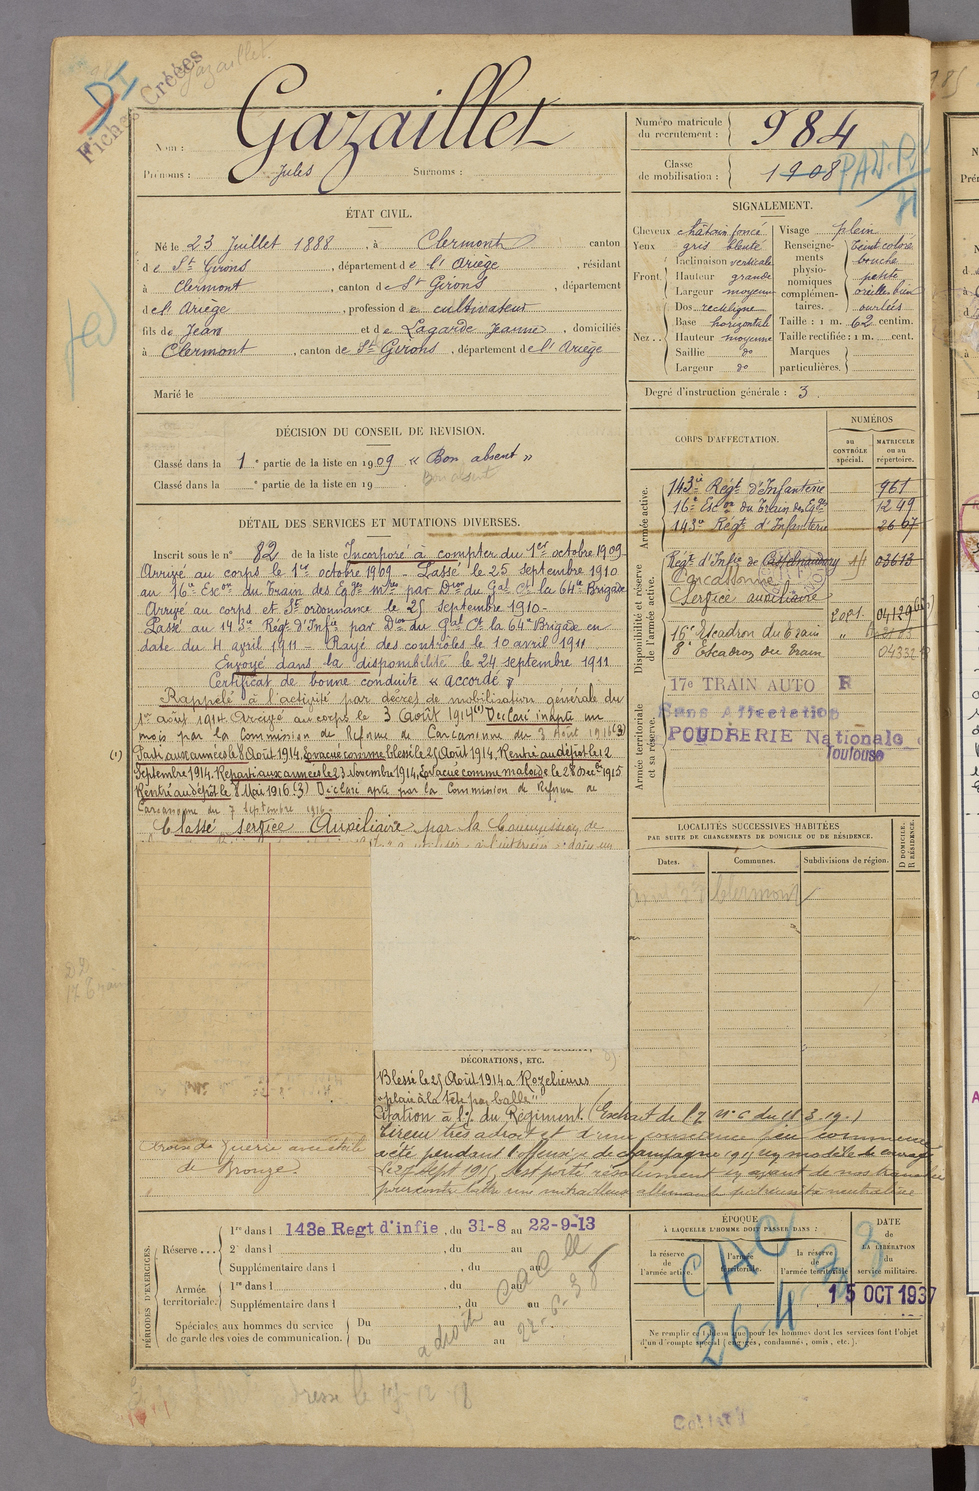 Fiches Créées
Gazaillet
Nom : Gazaillet
Prénoms : Jules Surnoms :
Numéro matricule du recrutement : 984
Classe de mobilisation : 1908
ÉTAT CIVIL.
Né le 23 Juillet 1888, à Clermont canton
de St Girons, département de l'Ariège, résidant
à Clermont, canton de St Girons, département
de l'Ariège, profession de cultivateur
fils de Jean et de Lagarde Jeanne, domiciliés
à Clermont, canton de St Girons, département de l'Ariège
Marié le
SIGNALEMENT.
Cheveux châtain foncé
Yeux gris bleuté
Front. Inclinaison verticale
Hauteur grande
Largeur moyenne
Nez.. Dos rectiligne
Base horizontale
Hauteur moyenne
Saillie do
Largeur do
Visage plein
Renseignements physionomiques complémentaires. Teint coloré
bouche
petite
oreilles bien
ourlées
Taille : 1 m. 62 centim.
Taille rectifiée : 1 m. cent.
Marques particulières.
Degré d'instruction générale : 3
DÉCISION DU CONSEIL DE REVISION.
Classé dans la 1e partie de la liste en 1909 « Bon absent »
Bon absent
Classé dans la e partie de la liste en 19
DÉTAIL DES SERVICES ET MUTATIONS DIVERSES.
Inscrit sous le n° 82 de la liste Incorporé à compter du 1er octobre 1909
Arrivé au corps le 1er octobre 1909 - Passé le 25 septembre 1910
au 16e Escon du Train des Eqges mres par Dion du Gal Ct la 64e Brigade
Arrivé au corps et St ordonnance le 25 septembre 1910 -
Passé au 143e Régt d'Infie par Dion du Gal Ct la 64e Brigade en
date du 4 avril 1911 - Rayé des contrôles le 10 avril 1911
Envoyé dans la disponibilité le 24 septembre 1911
Certificat de bonne conduite « accordé »
Rappelé à l'activité par décret de mobilisation générale du
1er août 1914. Arrivé au corps le 3 Août 1914 (1) Déclaré inapte un
mois par la Commission de Réforme de Carcassonne du 3 Août 1916 (3)
(1) Parti aux armées le 8 Août 1914. Evacué comme blessé le 25 Août 1914. Rentré au dépôt le 12
Septembre 1914. Reparti aux armées le 23 Novembre 1914. Evacué comme malade le 28 Dbre 1915
Rentré au dépôt le 8 Mai 1916. (3) Déclaré apte par la Commission de Réforme de
Carcassonne du 7 Septembre 1916.
Classé service Auxiliaire par la Commission de
CORPS D'AFFECTATION.
NUMÉROS
au CONTRÔLE spécial.
MATRICULE ou au répertoire.
Armée active.
143e Régt d'Infanterie 961
16e Escon du Train des Eqges 1249
143e Régt d'Infanterie 2667
Disponibilité et réserve de l'armée active.
Régt d'Infie de Castelnaudary 03613
Carcassonne
Service auxiliaire
16e Escadron du Train
8e Escadron du Train
Armée territoriale et sa réserve.
17e TRAIN AUTO R
Sans Affectation
POUDRERIE Nationale
Toulouse
LOCALITÉS SUCCESSIVES HABITÉES
PAR SUITE DE CHANGEMENTS DE DOMICILE OU DE RÉSIDENCE.
Dates. Communes. Subdivisions de région. D DOMICILE. R RÉSIDENCE.
Clermont
DÉCORATIONS, ETC.
Blessé le 25 Août 1914 à Rozelieures
"plaie à la tête par balle"
Citation à l'O. du Régiment. (Extrait de l'O. N° 6 du 11.3.19.)
Tireur très adroit et d'une
a été pendant l'offensive de Champagne 1915 un modèle de courage
Le 27 Sept 1915, s'est porté résolument en avant de nos tranchées
pour contrebattre une mitrailleuse allemande
Croix de Guerre avec étoile
de Bronze.
PÉRIODES D'EXERCICES.
Réserve... 1re dans l 143e Regt d'infie, du 31-8 au 22-9-13
2e dans l , du au
Supplémentaire dans l , du au
Armée territoriale. 1re dans l , du au
Supplémentaire dans l , du au
Spéciales aux hommes du service de garde des voies de communication. Du au
Du au
ÉPOQUE
À LAQUELLE L'HOMME DOIT PASSER DANS :
la réserve de l'armée active.
l'armée territoriale.
la réserve de l'armée territoriale
DATE de LA LIBÉRATION du service militaire.
CAC
26-4
15 OCT 1937
Ne remplir ce cadre que pour les hommes dont les services font l'objet
d'un décompte spécial (engagés, condamnés, omis, etc.)